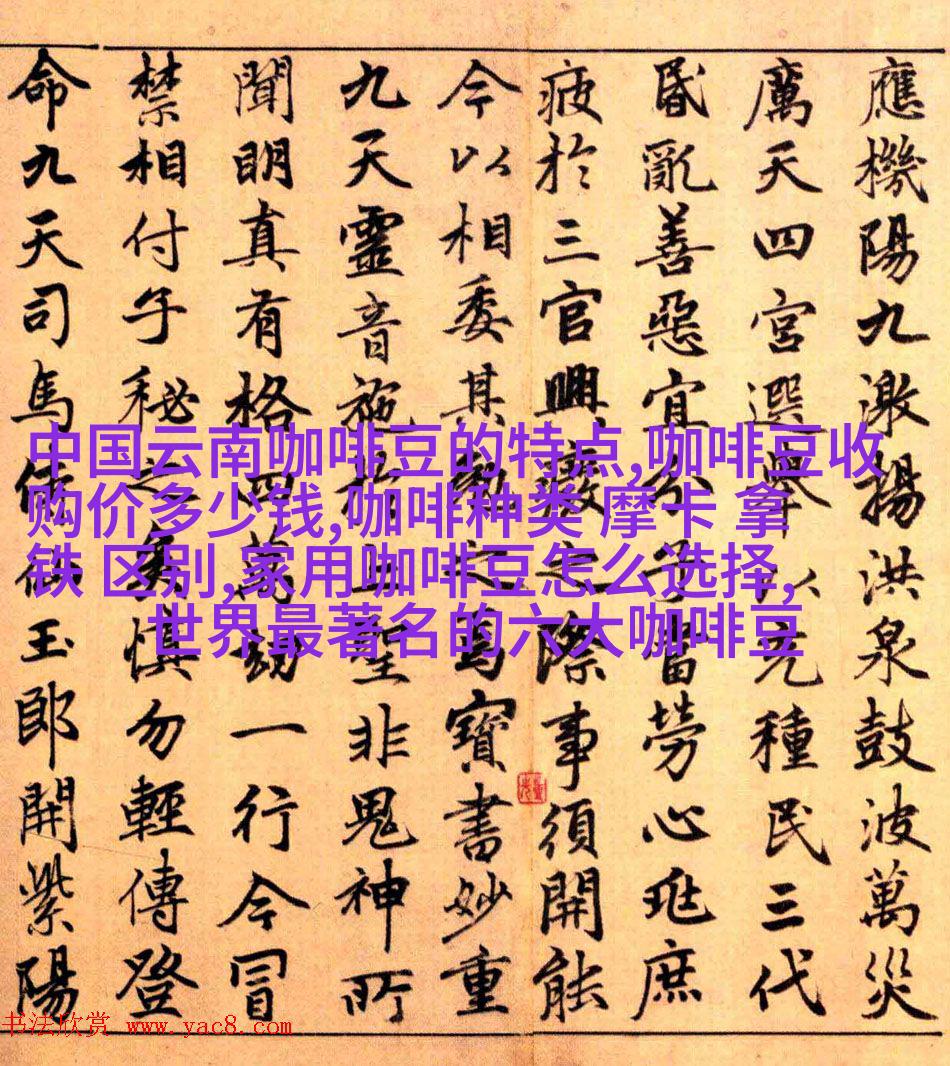 應機陽九激揚洪泉鼓波萬災
厲天四宮選舉以充種民三代
昬亂善惡宜分子當勞心兆庶
疲於三官興廢之際事須開能
今以相委其之焉寶書妙重
九天靈音施於上聖非鬼神所
聞明真有格四萬劫一行今冒
禁相付子秘之奉慎勿輕傳登
命九天司馬侍仙玉郎開紫陽
中国云南咖啡豆的特点,咖啡豆收
购价多少钱,咖啡种类 摩卡 拿
铁 区别,家用咖啡豆怎么选择,
世界最著名的六大咖啡豆
书法欣赏 www.yac8.com